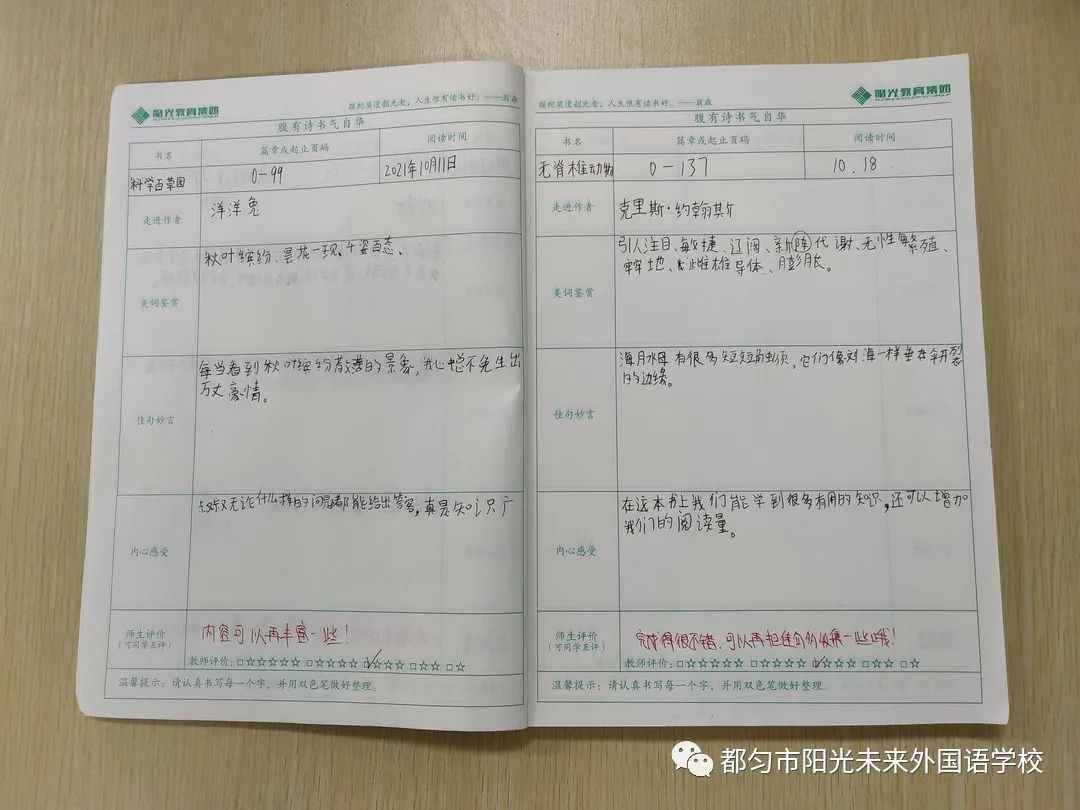 阳光教育集团
蹉跎莫遣韶光老，人生惟有读书好。——翁森
腹有诗书气自华
书名 篇章或起止页码 阅读时间
科学百草园 0-99 2021年10月11日
走进作者 洋洋兔
美词鉴赏 秋叶缤纷、昙花一现、千姿百态、
佳句妙言 每当看到秋叶缤纷散落的景象,我心中总不免生出
万丈豪情。
内心感受 无论什么样的问题都能给出答案,真是知识广
师生评价
(可同学互评)
内容可以再丰富一些!
教师评价:□☆☆☆☆☆ □☆☆☆☆ □☆☆☆ □☆☆ □☆
温馨提示：请认真书写每一个字，并用双色笔做好整理。
蹉跎莫遣韶光老，人生惟有读书好。——翁森
阳光教育集团
腹有诗书气自华
书名 篇章或起止页码 阅读时间
无脊椎动物 0-137 10.18
走进作者 克里斯·约翰斯
美词鉴赏 引人注目、敏捷、辽阔、新陈代谢、无性繁殖、
牢地、雌雄导体、膨胀。
佳句妙言 海月水母有很多短短角虫须，它们像刘海一样垂在伞开裂
的边缘。
内心感受 在这本书上我们能学到很多有用的知识,还可以增加
我们的阅读量。
师生评价
(可同学互评)
完成得很不错,可以再把佳句积累一些哦!
教师评价:□☆☆☆☆☆ □☆☆☆☆ □☆☆☆ □☆☆ □☆
温馨提示：请认真书写每一个字，并用双色笔做好整理。
都匀市阳光未来外国语学校